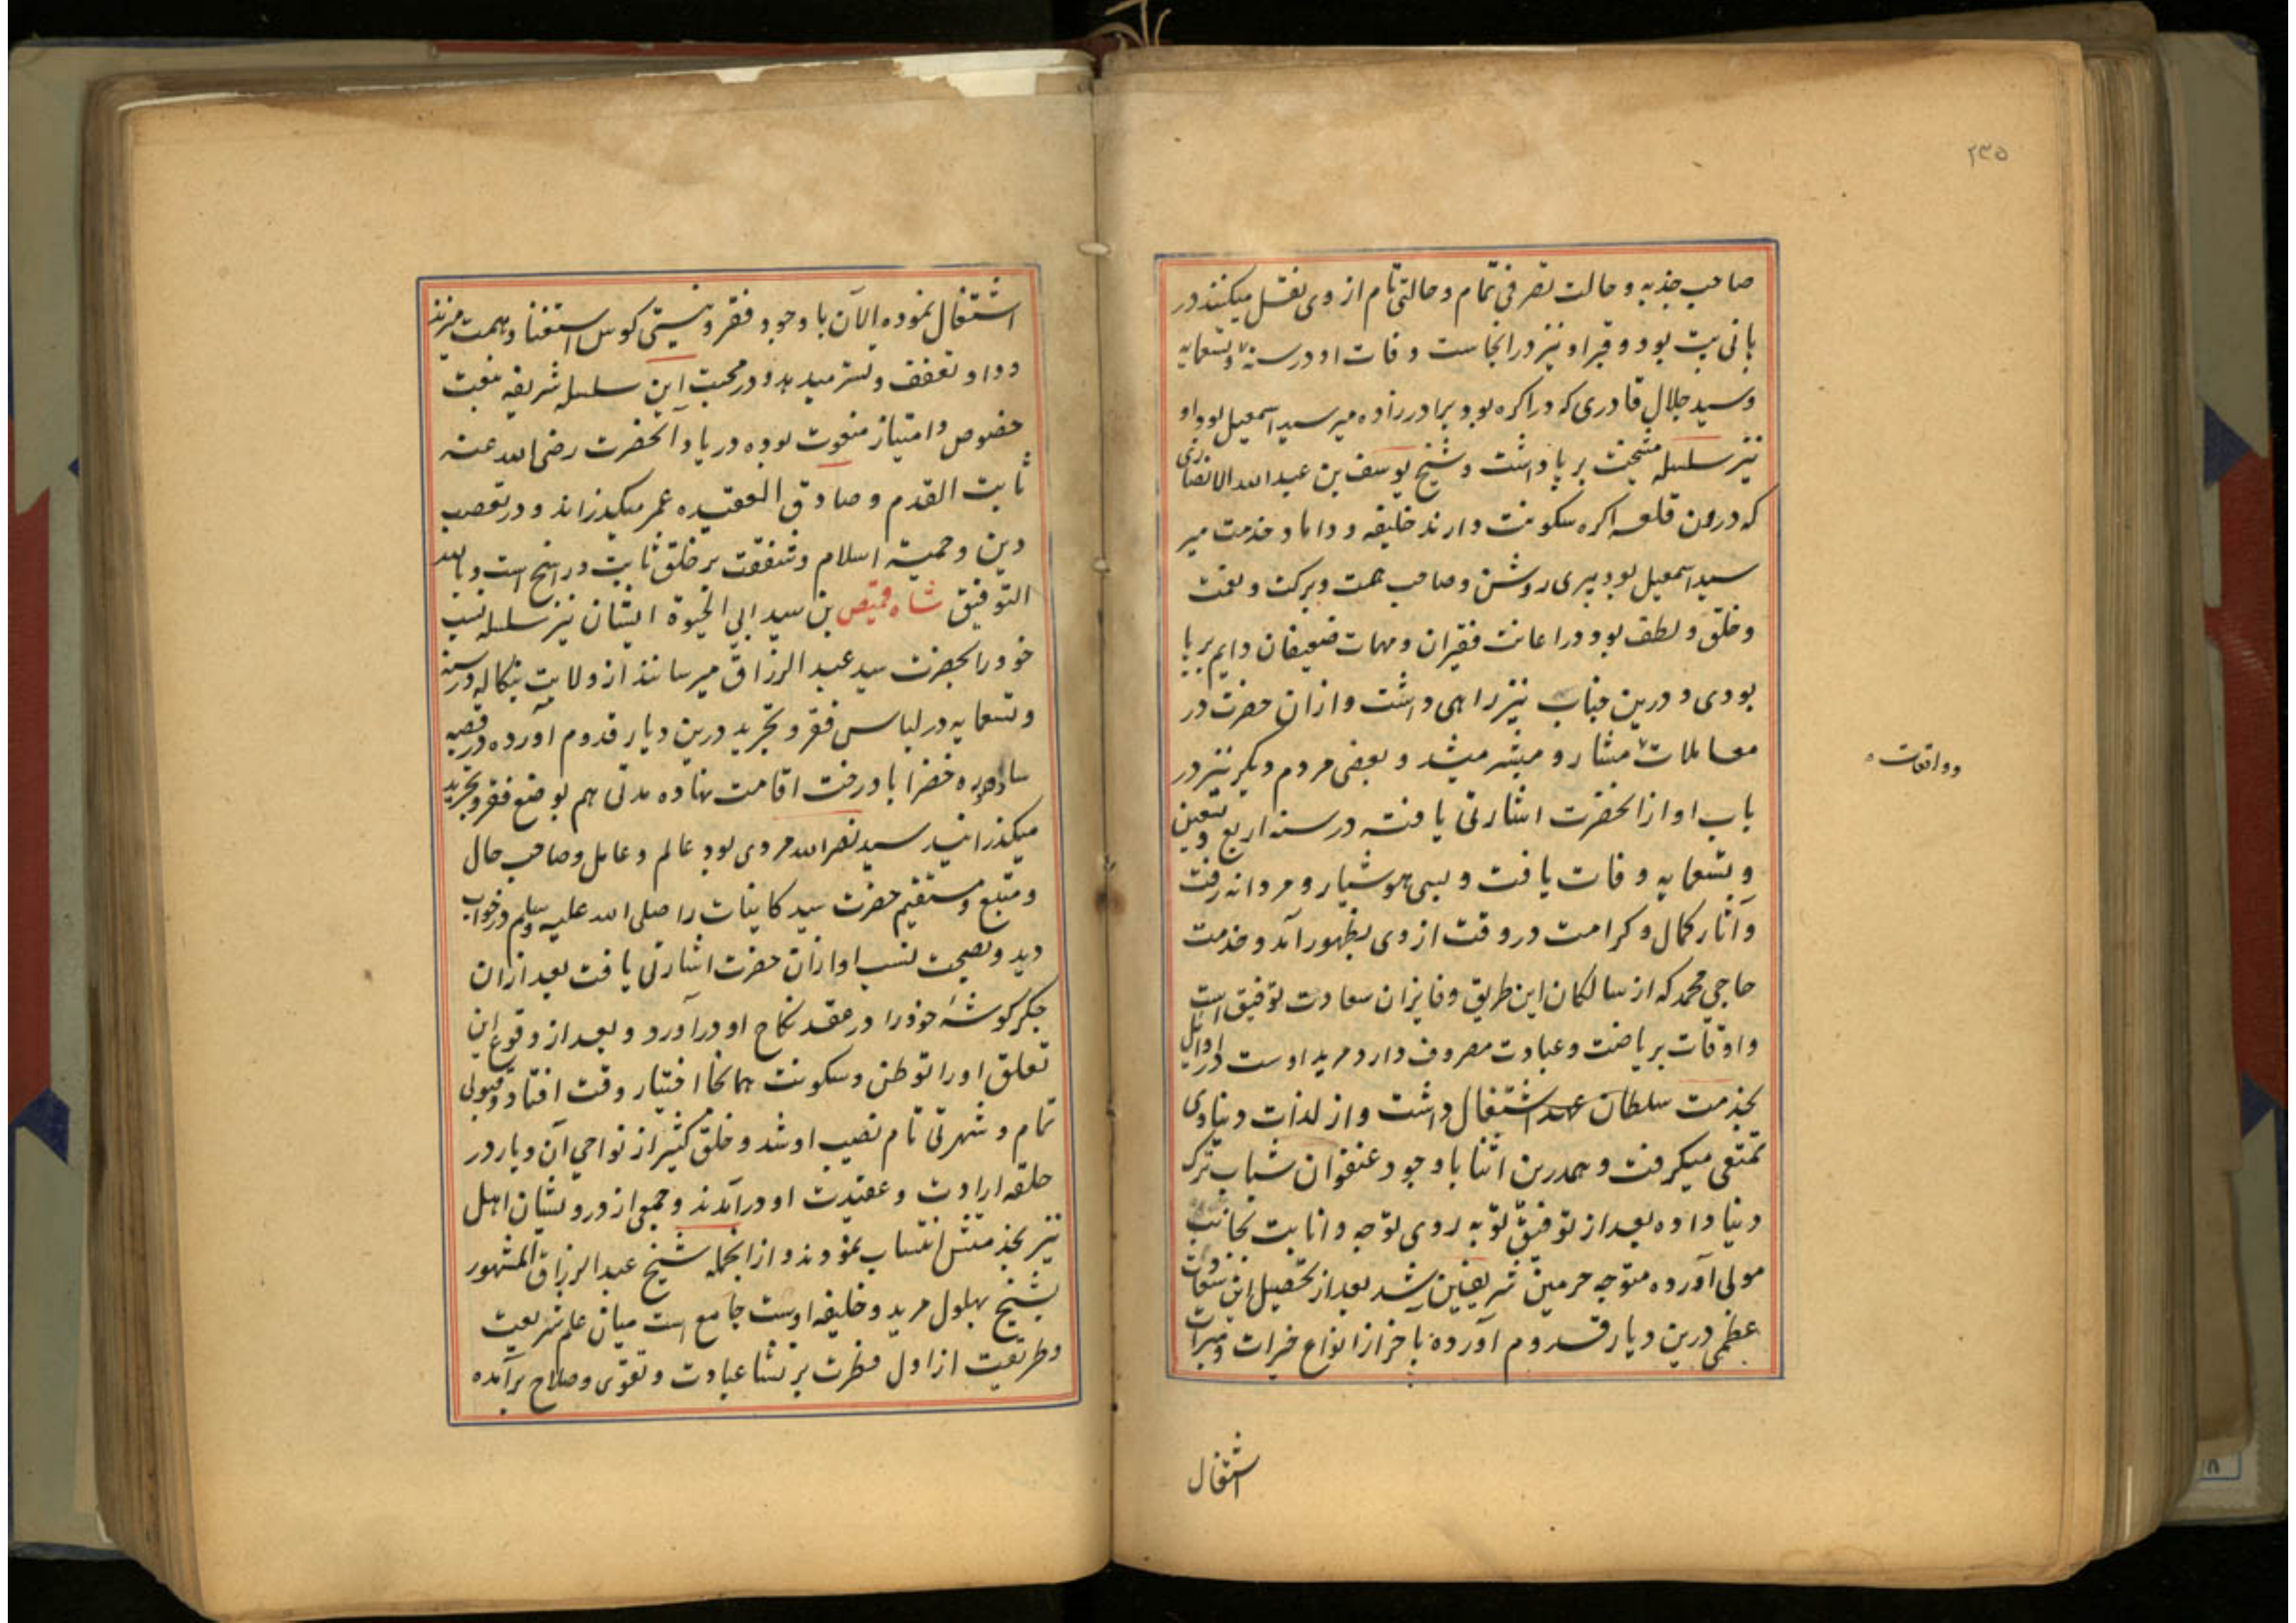 ۲۳۵
صاحب جذبه و حالت تصرفی تمام و حالتی تام از وی نقل میکنند در
پانی پت بود و قبر او نیز در انجاست وفات او در سنه و تسعمایه
و سید جلال قادری که در اکره بود برادرزاده میر سید اسمعیل بود او
نیز سلسله مشیخت بر پا داشت و شیخ یوسف بن عبدالله الانصاری
که درون قلعه اکره سکونت دارند خلیفه و داماد و خدمت میر
سید اسمعیل بود پیری روشن و صاحب همت و برکت و نعمت
و خلق و لطف بود در اعانت فقیران و مهمات ضعیفان دایم بر پا
بودی و درین جناب نیز راهی داشت و ازان حضرت در
معاملات مشار و مبشر میشد و بعضی مردم دیکر نیز در
وواقعات
باب او از انحضرت اشارتی یافته در سنه اربع و تسعین
و تسعمایه وفات یافت و بسی هوشیار و مردانه رفت
و آثار کمال و کرامت در وقت از وی بظهور آمد و خدمت
حاجی محمد که از سالکان این طریق و فایزان سعادت توفیق است
و اوقات بریاضت و عبادت مصروف دارد مرید اوست در اوایل
بخدمت سلطان عهد اشتغال داشت و از لذات دنیاوی
تمتعی میکرفت و همدرین اثنا باوجود عنفوان شباب ترک
دنیا داده بعد از توفیق توبه روی توجه و انابت بجانب
مولی آورده متوجه حرمین شریفین شد بعد از تحصیل این سعادت
عظمی درین دیار قدوم آورده بآخر از انواع خیرات و مبرات
اشتغال
اشتغال نموده الآن با وجود فقر و نیستی کوس استغنا و همت میزند
و داد تعفف و تستر میدهد و در محبت این سلسله شریفه بنعت
خصوص و امتیاز منعوت بوده در یاد آنحضرت رضی الله عنه
ثابت القدم و صادق العقیده عمر میکذراند و در تعصب
دین و حمیت اسلام و شفقت بر خلق ثابت و راسخ است و بالله
التوفیق شاه قمیص بن سید ابی الحیوة ایشان نیز سلسله نسب
خود را بحضرت سید عبد الرزاق میرسانند از ولایت بنکاله در سنه
و تسعمایه در لباس فقر و تجرید درین دیار قدوم آورده در قصبه
سادهوره خضراباد رخت اقامت نهاده مدتی هم بوضع فقر و تجرید
میکذرانید سید نصرالله مردی بود عالم و عامل و صاحب حال
و متبع و مستقیم حضرت سید کاینات را صلی الله علیه وسلم در خواب
دید و بصحت نسب او ازان حضرت اشارتی یافت بعد ازان
جکرکوشهٔ خود را در عقد نکاح او درآورد و بعد از وقوع این
تعلق او را توطن و سکونت همانجا اختیار وقت افتاد و قبولی
تمام و شهرتی تام نصیب او شد و خلق کثیر از نواحی آن دیار در
حلقه ارادت و عقیدت او درآمدند و جمعی از درویشان اهل
نیز بخدمتش انتساب نمودند و ازانجمله شیخ عبد الرزاق المشهور
بشیخ بهلول مرید و خلیفه اوست جامع است میان علم شریعت
و طریقت از اول فطرت بر نشا عبادت و تقوی و صلاح برآمده